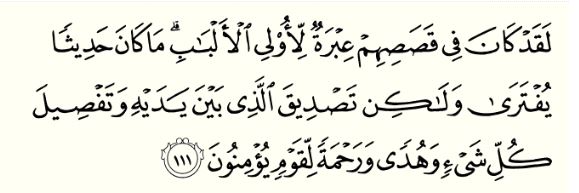 لَقَدْ كَانَ فِى قَصَصِهِمْ عِبْرَةٌ لِّأُو۟لِى ٱلْأَلْبَـٰبِ ۗ مَا كَانَ حَدِيثًا
يُفْتَرَىٰ وَلَـٰكِن تَصْدِيقَ ٱلَّذِى بَيْنَ يَدَيْهِ وَتَفْصِيلَ
كُلِّ شَىْءٍ وَهُدًى وَرَحْمَةً لِّقَوْمٍ يُؤْمِنُونَ ١١١